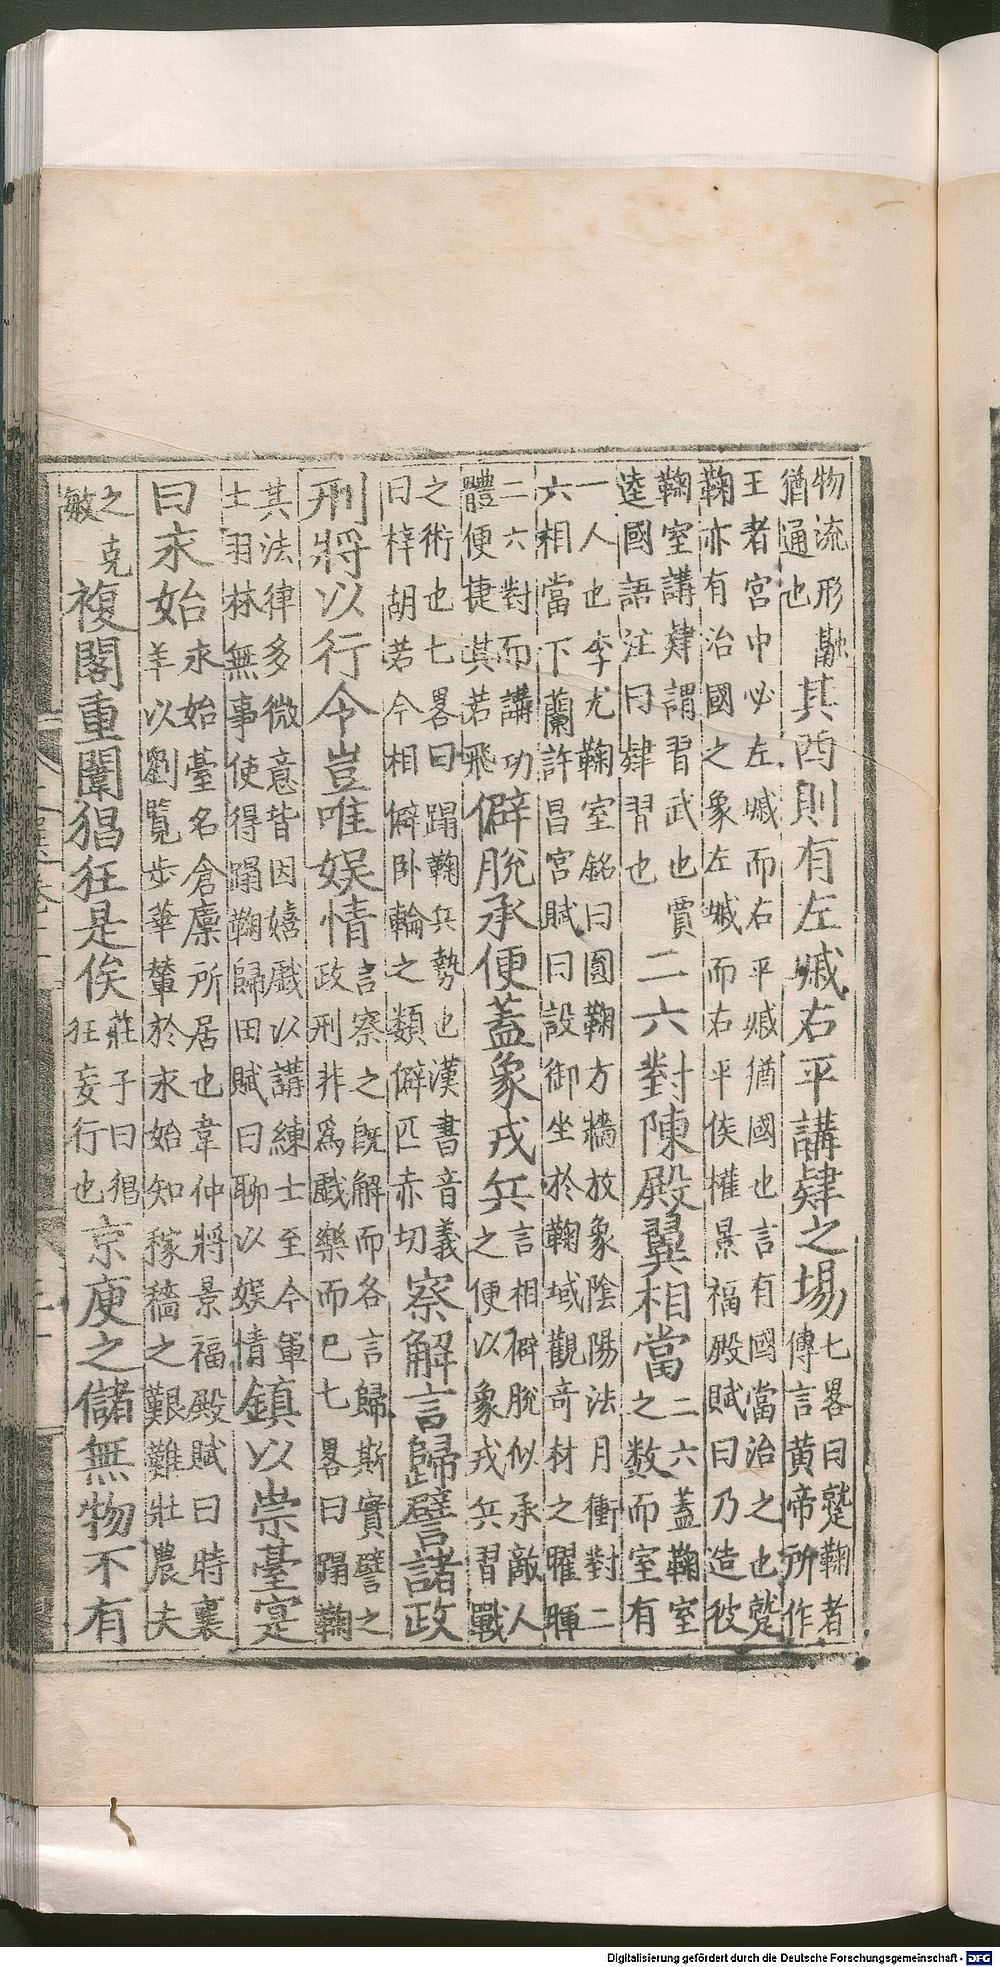 物流形
猶通也
其酉則有左墄右平講肄之場
七畧曰蹵鞠者
傳言黃帝所作
王者宮中必左墄而右平墄猶國也言有國當治之也蹵
鞠亦有治國之象左墄而右平侯權景福殿賦曰乃造彼
鞠室講肄謂習武也賈
逵國語注曰肄習也
二六對陳殿翼相當
二六蓋鞠室
之数而室有
一人也李尤鞠室銘曰圎鞠方牆放象陰陽法月衝對二
六相當下蘭許昌宮賦曰設御坐於鞠域觀奇材之曜暉
二六對而講功
體便捷其若飛
僻脫承便蓋象戎兵
言相僻脫似承敵人
之便以象戎兵習戰
之術也七畧曰蹋鞠兵勢也漢書音義
曰梓胡若今相僻卧輪之類僻匹赤切
察解言歸譬諸政
刑將以行令豈唯娛情
言察之既解而各言歸斯實譬之
政刑非爲戲樂而巳七畧曰蹋鞠
其法律多微意皆因嬉戲以講練士至今軍
士羽林無事使得蹋鞠歸田賦曰聊以娛情
鎮以崇臺寔
曰永始
永始臺名倉廩所居也韋仲將景福殿賦曰時襄
羊以劉覽步華輦於永始知稼穡之艱難壯農夫
之克
敏
複閣重闈猖狂是俟
莊子曰猖
狂妄行也
京庾之儲無物不有
Digitalisierung gefördert durch die Deutsche Forschungsgemeinschaft - DFG